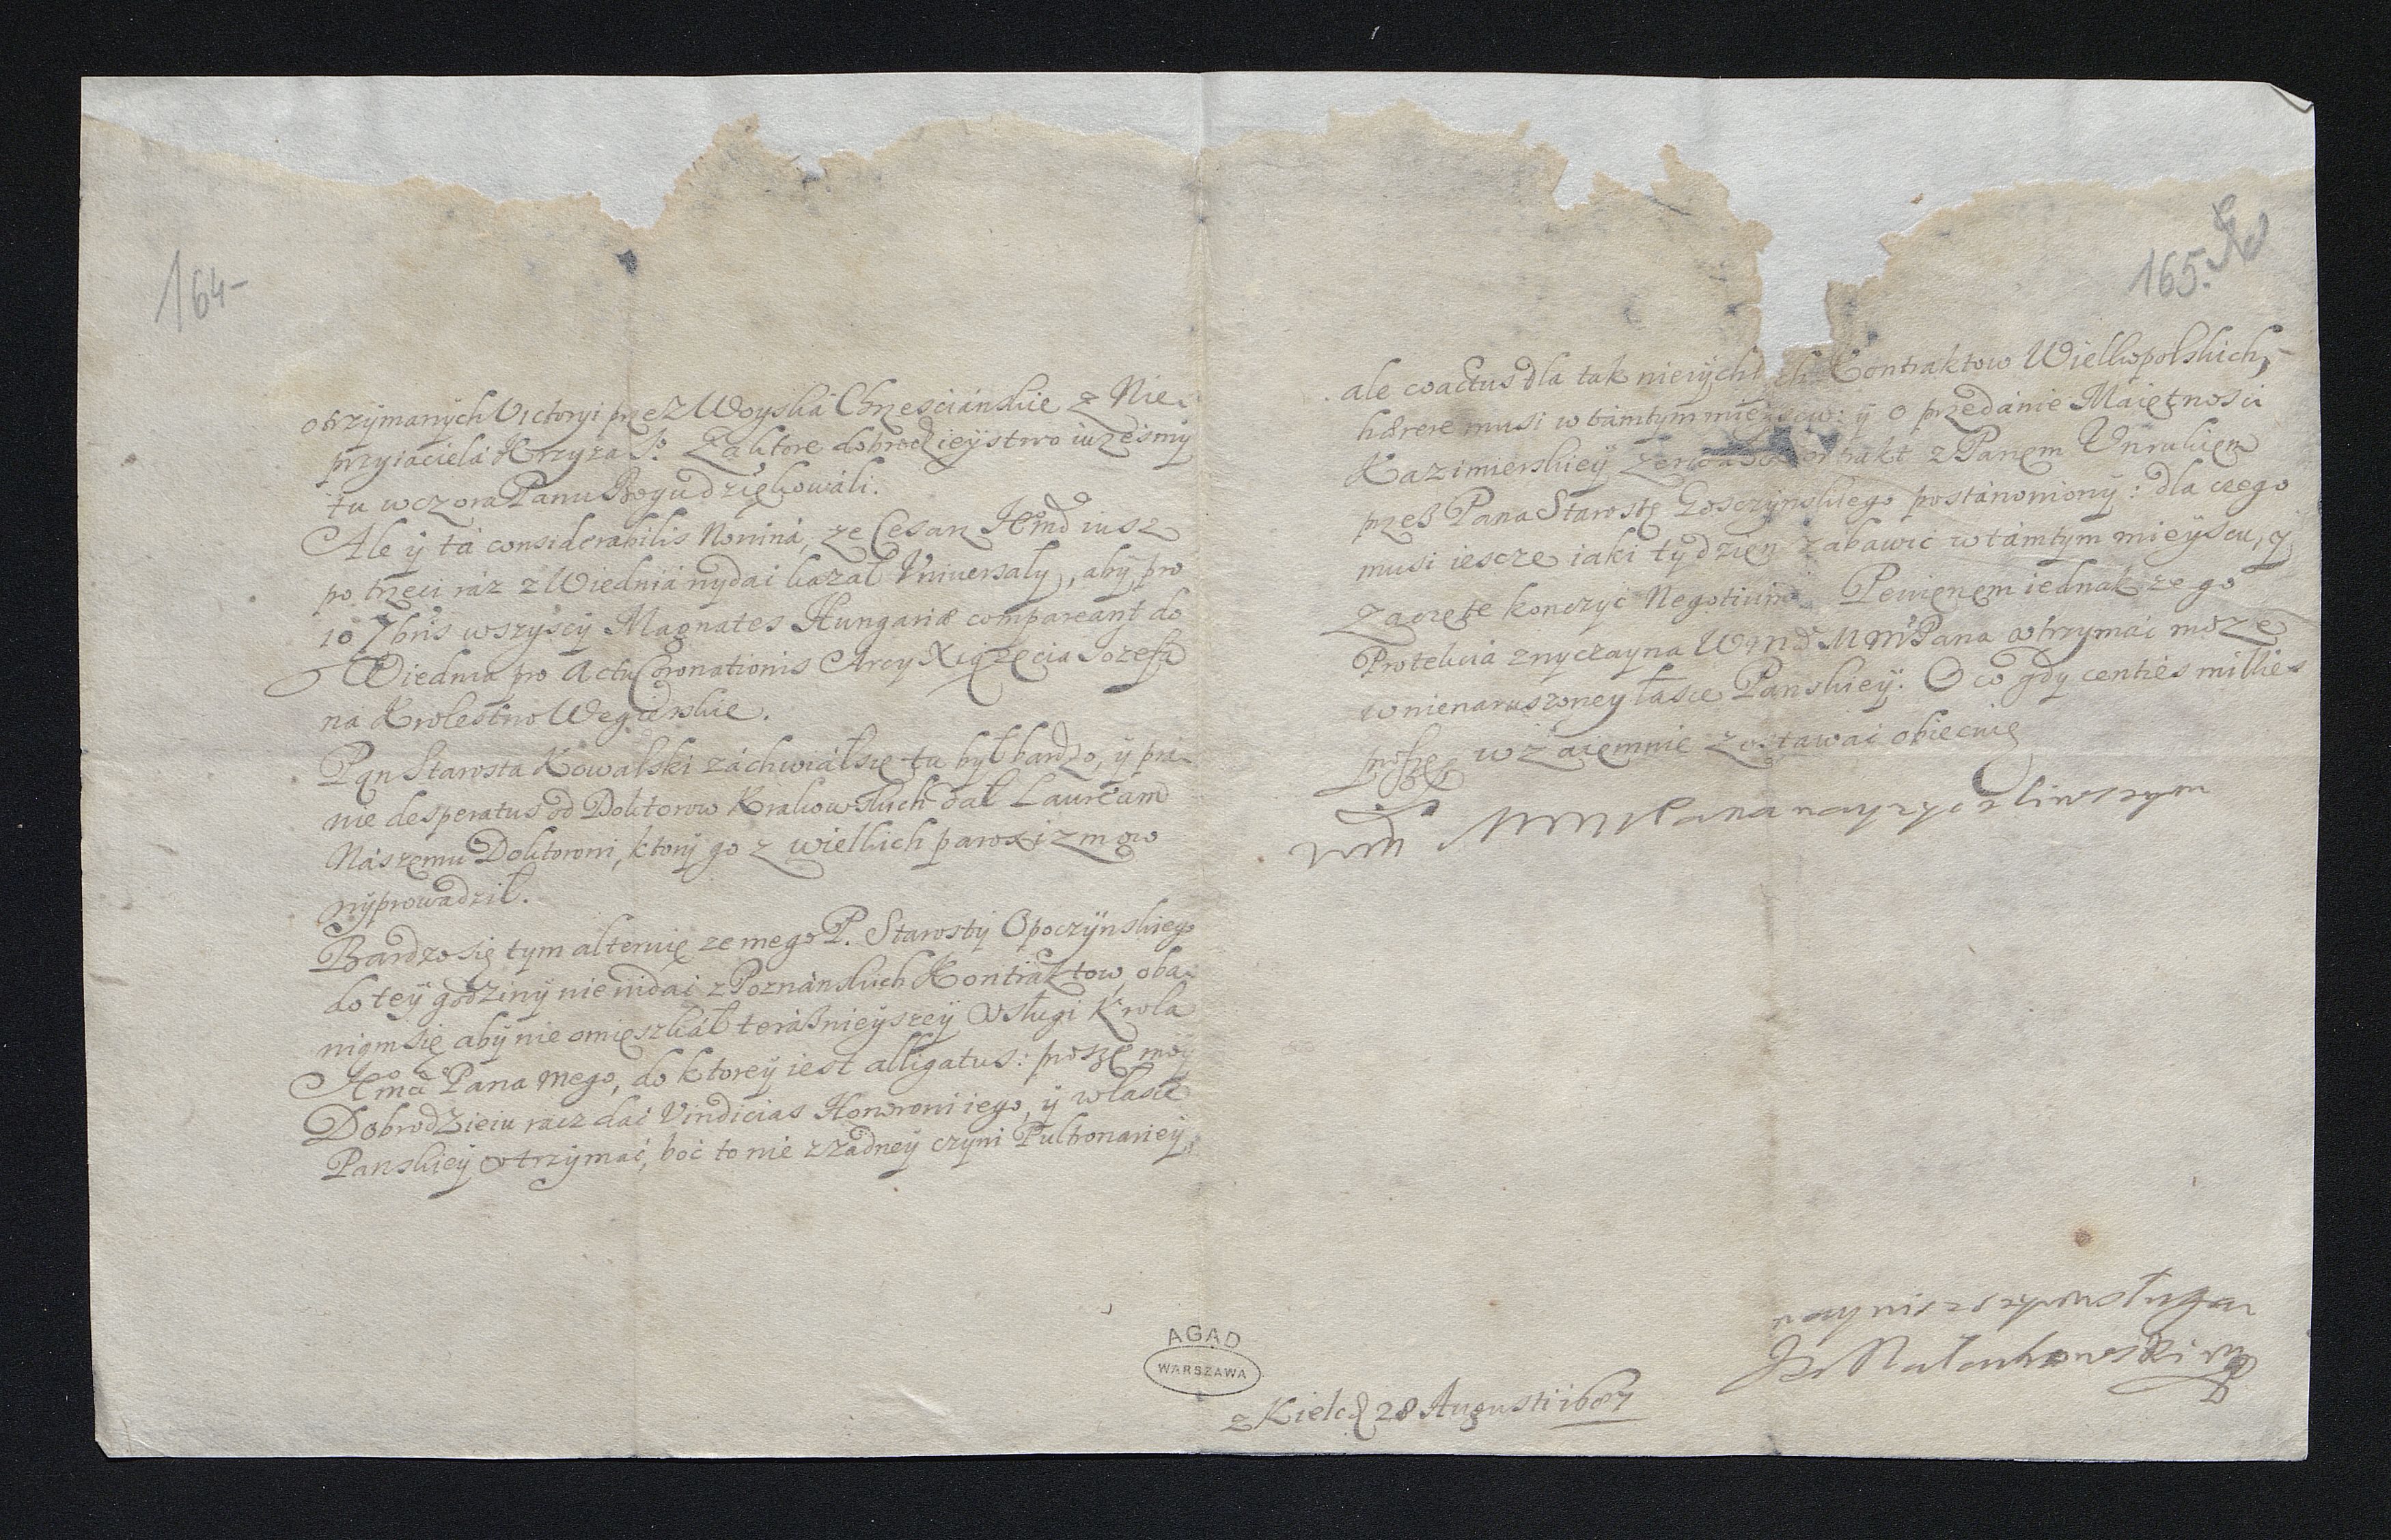 164-
otrzymanych Victoryi przez Woyská Chrzesciánskie z Nie-
przyiaciela Krzyza So. Za ktore dobrodzieystwo iuzesmy
tu wczora Panu Bogu dziękowáli.
Ale y tá considerabilis Nowiná, ze Cesarz Jemći iusz
po trzeci ráz z Wiedniá wydać kazał Vniversały, aby pro
10 7bris wszyscy Magnates Hungariæ compareant do
Wiednia pro Actu Coronationis Arcy Xiążęcia Jozefa
ná Krolestwo Węgierskie.
Pan Starosta Kowalski záchwiáł się tu był bardzo, y pra-
wie desperatus od Doktorow Krakowskich dał Lauream
Nászemu Doktorowi, ktory go z wielkich paroxizmow
wyprowádził.
Bardzo się tym alteruię ze mego P. Starosty Opoczynskiego
do tey godziny nie widać z Poznánskich Kontráktow, oba-
wiam się aby nie omieszkáł teráznieyszey Vsługi Krola
Jemći Pana mego, do ktorey iest alligatus: proszę moy
Dobrodzieiu racz dać Vindicias Honorowi iego, y w łásce
Panskiey vtrzymać, boć to nie z żadney czyni Pultronariey,
165.
ale coactus dla tak nierychł ch Kontraktow Wielkopolskich,
hærere musi w támtym mieyscu: y o przedánie Máiętnosci
Kazimierskiey z Panem Vnrukiem
przez Pana Starostę Gosczynskiego postánowiony: dla czego
musi iescze iaki tydzien zabawić w támtym mieyscu, y
zaczęte konczyć Negotium. Pewienem iednak ze go
Protekcia zwyczayna Wmći M Mći Pana vtrzymać może
w nienaruszoney łasce Panskiey. O co gdy centies millies
proszę, wzaiemnie zostawać obiecuię
Wmći M Mći Pana nayzyczliwszym
nayniszszym sługą
Jan Małachowski
z Kielc d 28 Augusti 1687
AGAD
WARSZAWA